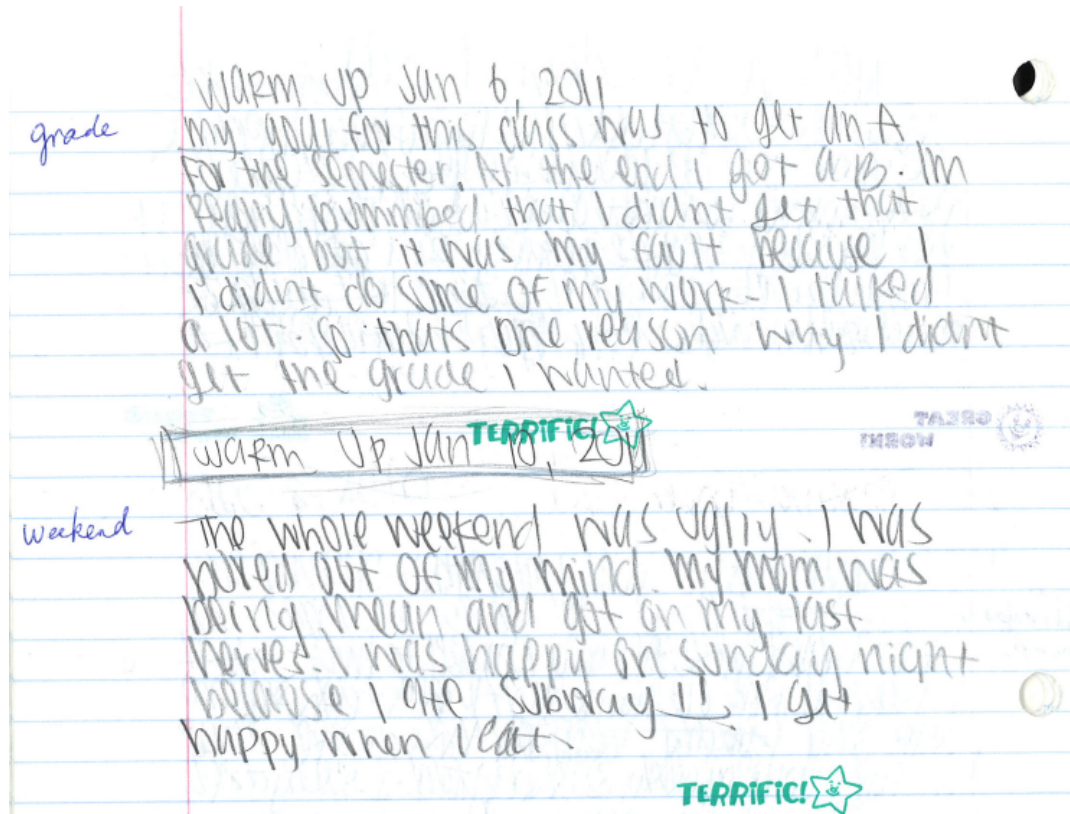 warm up Jan 6, 2011
grade
my goal for this class was to get an A
For the semester. At the end I got a B. Im
Really bummbed that I didnt get that
grade but it was my fault because I
I didnt do some of my work. I talked
a lot. so thats one reason why I didnt
get the grade I wanted.
TERRiFiC!
GREAT
WORK!
warm up Jan 10, 2011
weekend
The whole weekend was uglly. I was
bored out of my mind. my mom was
being mean and got on my last
nerves. I was happy on sunday night
because I ate subway!! I get
happy when I eat.
TERRiFiC!